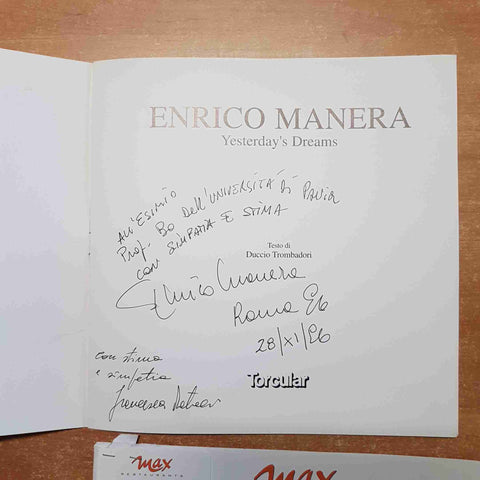 ENRICO MANERA
Yesterday's Dreams
All'Esimio
Prof. Bo dell'Università di Pavia
con simpatia e stima
Testo di
Duccio Trombadori
Enrico Manera
Roma
28/XI/96
con stima
e simpatia
Francesca
Torcular
max
RESTAURANTS
max